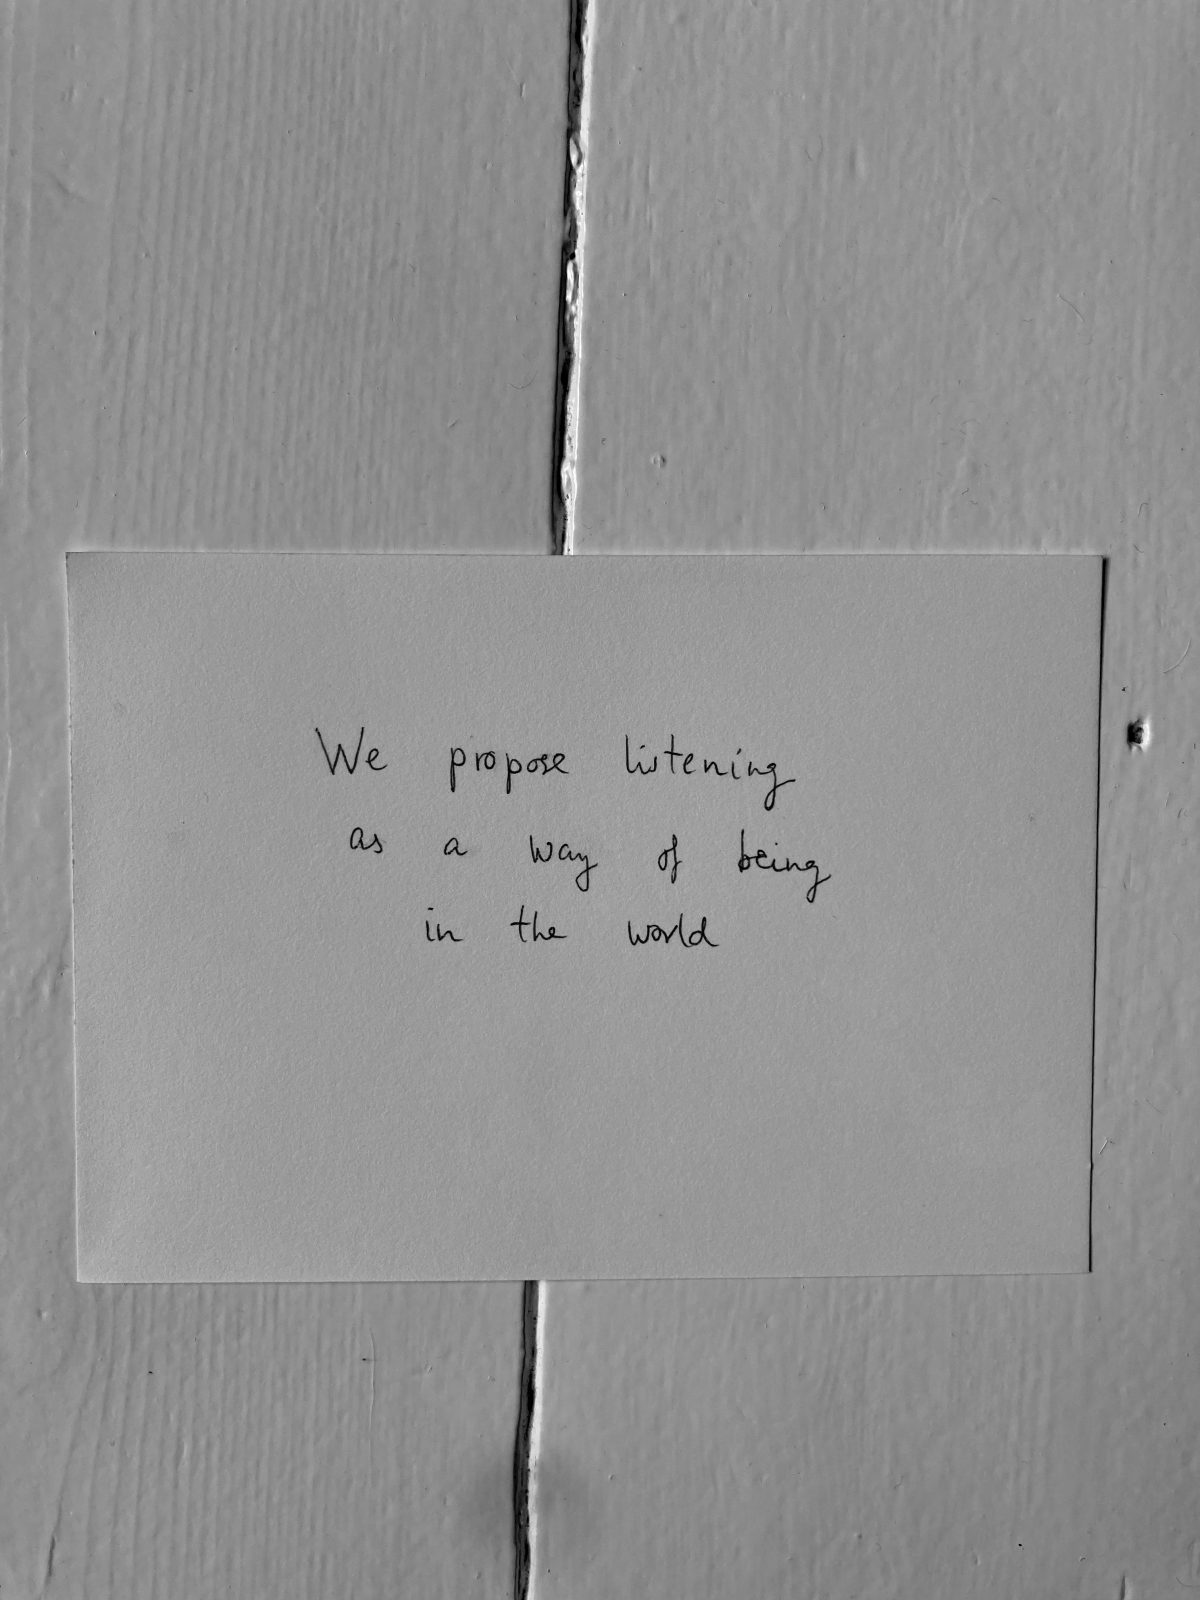 We propose listening
as a way of being
in the world